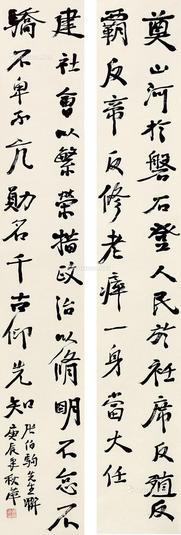 奠山河於磐石登人民於衽席反殖反
霸反帝反修老瘴一身當大任
建社會以繁榮措政治以脩明不怠不
驕不卑不亢勛名千古仰先知
張伯駒先生聯
庚辰